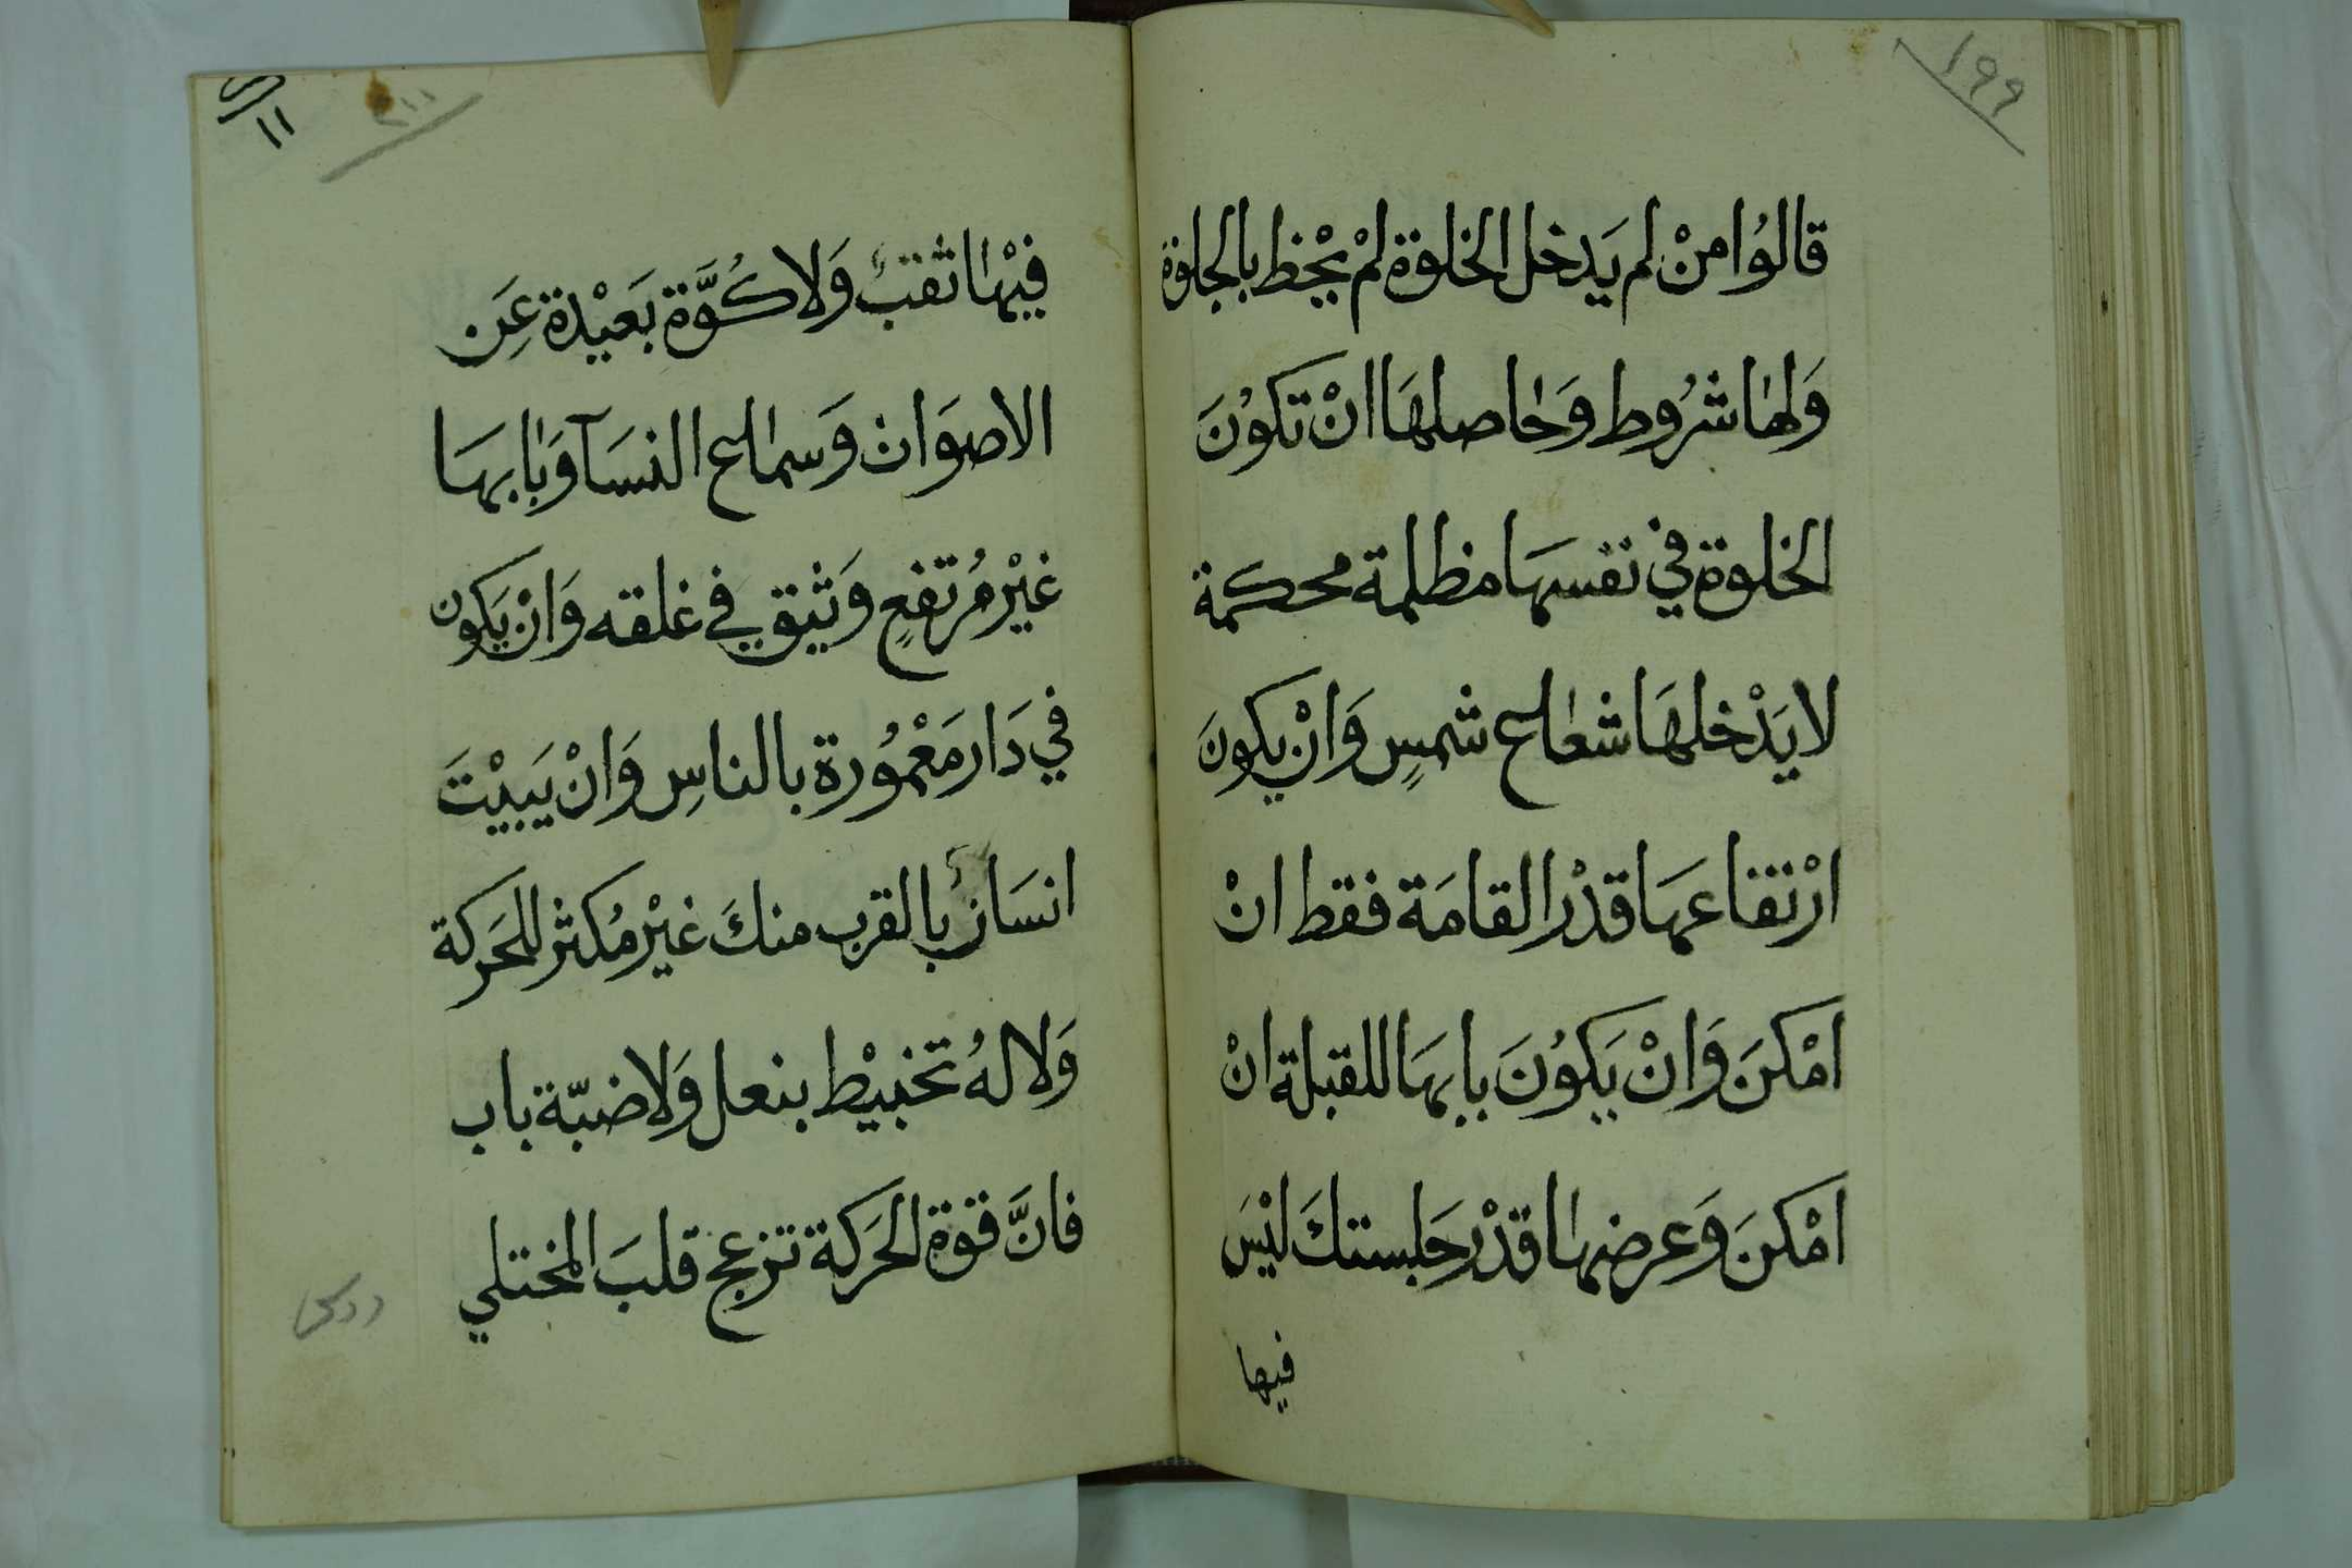 ١٩٩
قالوُا منْ لم يَدخل الخلوة لمْ يحْظ بالجلوة
وَلها شرُوط وَحاصلهَا انْ تكوُنَ
الخلوة في نفسهَا مظلمة محكمة
لا يَدْخلهَا شعاع شمسٍ وَانْ يكونَ
ارْتفاعهَا قدْر القامَة فقط انْ
امْكنَ وَانْ يَكوُنَ بابهَا للقبلة انْ
امْكنَ وَعرضها قدْر جَلستكَ ليْسَ
فيها
١١
فيْها ثقبٌ وَلا كُوَّة بَعيْدة عَن
الاصوَات وَسماع النسَآ وَبابهَا
غيْر مُرتفعٍ وَثيق في غلقه وَانْ يَكون
في دَار مَعْموُرة بالناسِ وَانْ يَبيْتَ
انسَانٌ بالقرب منكَ غيْر مُكثر للحَركة
وَلا لهُ تخبيْط بنعل وَلا ضبّة باب
فانَّ قوة الحَركة تزعج قلبَ المختلي